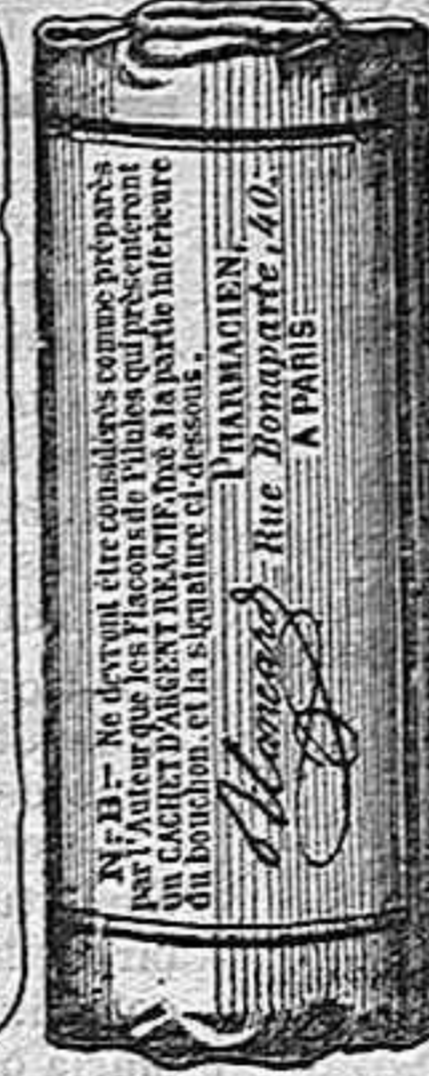 N.-B.- Ne devront être considérés comme préparés
par l'Auteur que les Flacons de Pilules qui présenteront
un CACHET D'ARGENT RÉACTIF, fixé à la partie inférieure
du bouchon, et la signature ci-dessous.
PHARMACIEN,
Blancard Rue Bonaparte, 40,
A PARIS